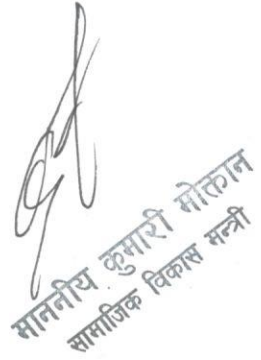 माननीय कुमारी मोक्तान
सामाजिक विकास मन्त्री